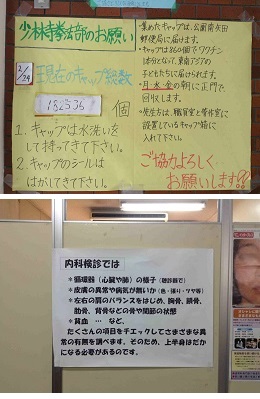 少林寺拳法部のお願い
2/24 現在のキャップ総数
個
1. キャップは水洗いを
して持ってきて下さい。
2. キャップのシールは
はがしてきて下さい。
集めたキャップは、公園南矢田
郵便局に届けます。
・キャップは860個でワクチン
1体分となって、東南アジアの
子どもたちに届けられます。
・月・水・金の朝に正門で
回収します。
・先生方は、職員室と管作室に
設置しているキャップ箱に
入れて下さい。
ご協力よろしく
お願いします!!
内科検診では
*循環器(心臓や肺)の様子(聴診器で)
*皮膚の異常や病気が無いか(色・張り・ツヤ等)
*左右の肩のバランスをはじめ、胸骨、鎖骨、
肋骨、背骨などの骨や関節の状態
*貧血 … など、
たくさんの項目をチェックしてさまざまな異
常の有無を調べます。そのため、上半身はだか
になる必要があるのです。